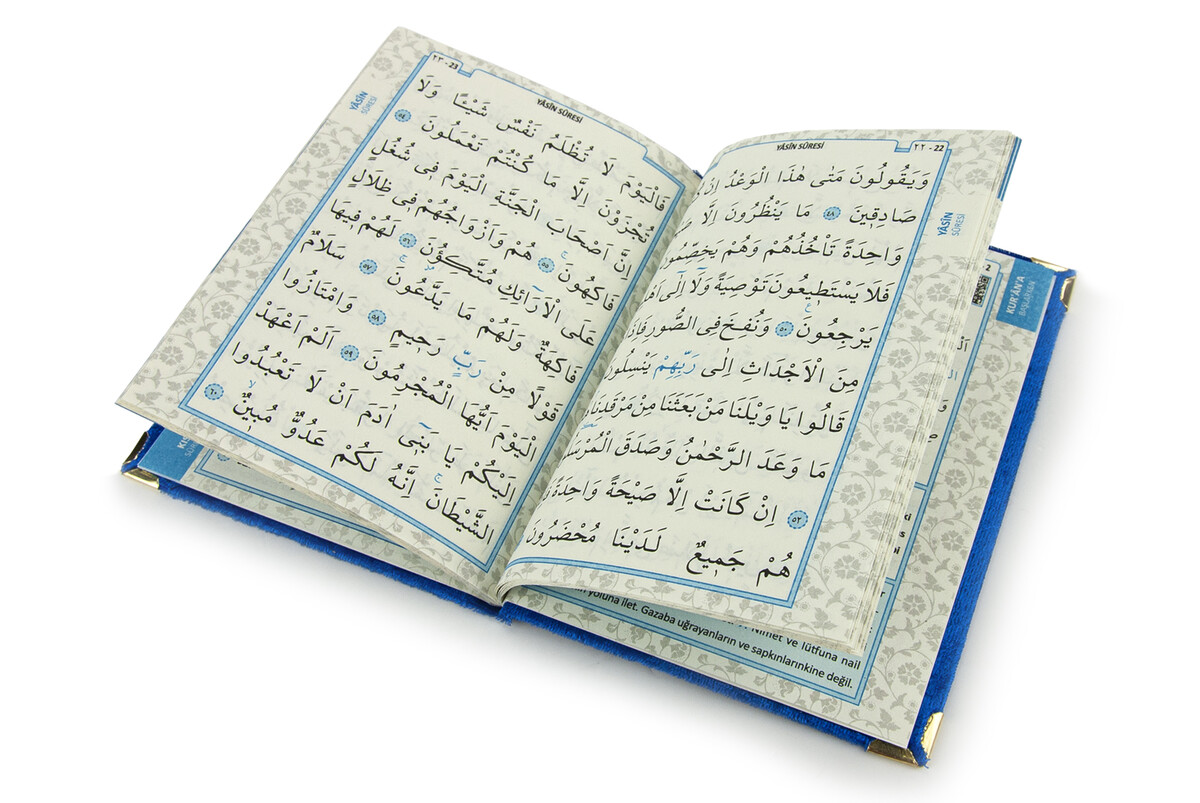 YÂSÎN SÛRESİ
٢٢ - 22
YÂSÎN
SÛRESİ
وَيَقُولُونَ مَتٰى هٰذَا الْوَعْدُ اِنْ
صَادِقِينَ ٤٨ مَا يَنْظُرُونَ اِلَّا
وَاحِدَةً تَأْخُذُهُمْ وَهُمْ يَخِصِّمُونَ
فَلَا يَسْتَطِيعُونَ تَوْصِيَةً وَلَٓا اِلٰٓى
يَرْجِعُونَ ٥٠ وَنُفِخَ فِى الصُّورِ فَاِذَا
مِنَ الْاَجْدَاثِ اِلٰى رَبِّهِمْ يَنْسِلُونَ
قَالُوا يَا وَيْلَنَا مَنْ بَعَثَنَا مِنْ مَرْقَدِنَا
مَا وَعَدَ الرَّحْمٰنُ وَصَدَقَ الْمُرْسَلُ
٥٢ اِنْ كَانَتْ اِلَّا صَيْحَةً وَاحِدَةً
هُمْ جَمِيعٌ لَدَيْنَا مُحْضَرُونَ
٢٣ - 23
YÂSÎN SÛRESİ
YÂSÎN
SÛRESİ
فَالْيَوْمَ لَا تُظْلَمُ نَفْسٌ شَيْـًٔا وَلَا
تُجْزَوْنَ اِلَّا مَا كُنْتُمْ تَعْمَلُونَ ٥٤
اِنَّ اَصْحَابَ الْجَنَّةِ الْيَوْمَ فِى شُغُلٍ
فَاكِهُونَ ٥٥ هُمْ وَاَزْوَاجُهُمْ فِى ظِلَالٍ
عَلَى الْاَرَٓائِكِ مُتَّكِؤُنَ ٥٦ لَهُمْ فِيهَا
فَاكِهَةٌ وَلَهُمْ مَا يَدَّعُونَ ٥٧ سَلَامٌ
قَوْلًا مِنْ رَبٍّ رَحِيمٍ ٥٨ وَامْتَازُوا
الْيَوْمَ اَيُّهَا الْمُجْرِمُونَ ٥٩ اَلَمْ اَعْهَدْ
اِلَيْكُمْ يَا بَنِٓى اٰدَمَ اَنْ لَا تَعْبُدُوا
الشَّيْطَانَ اِنَّهُ لَكُمْ عَدُوٌّ مُبِينٌ ٦٠
2
KUR'ÂN'A
BAŞLARKEN
yoluna ilet. Gazaba uğrayanların ve sapkınlarınkine değil.
Nimet ve lütfuna nail